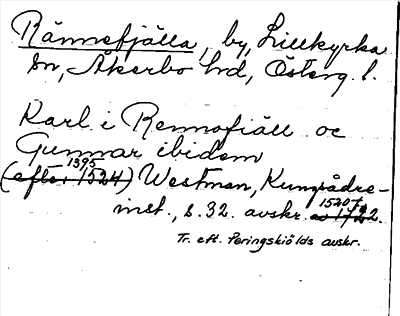 Rännefjälla, by, Lillkyrka
sn, Åkerbo hd, Österg. l.
Karl i Rennofiäll oc
Gunnar ibidem
1395
(efter 1524) Westman, Kungådre-
1520 t.
inst., s. 32. avskr. av 1722.
Tr. eft. Peringskiölds avskr.